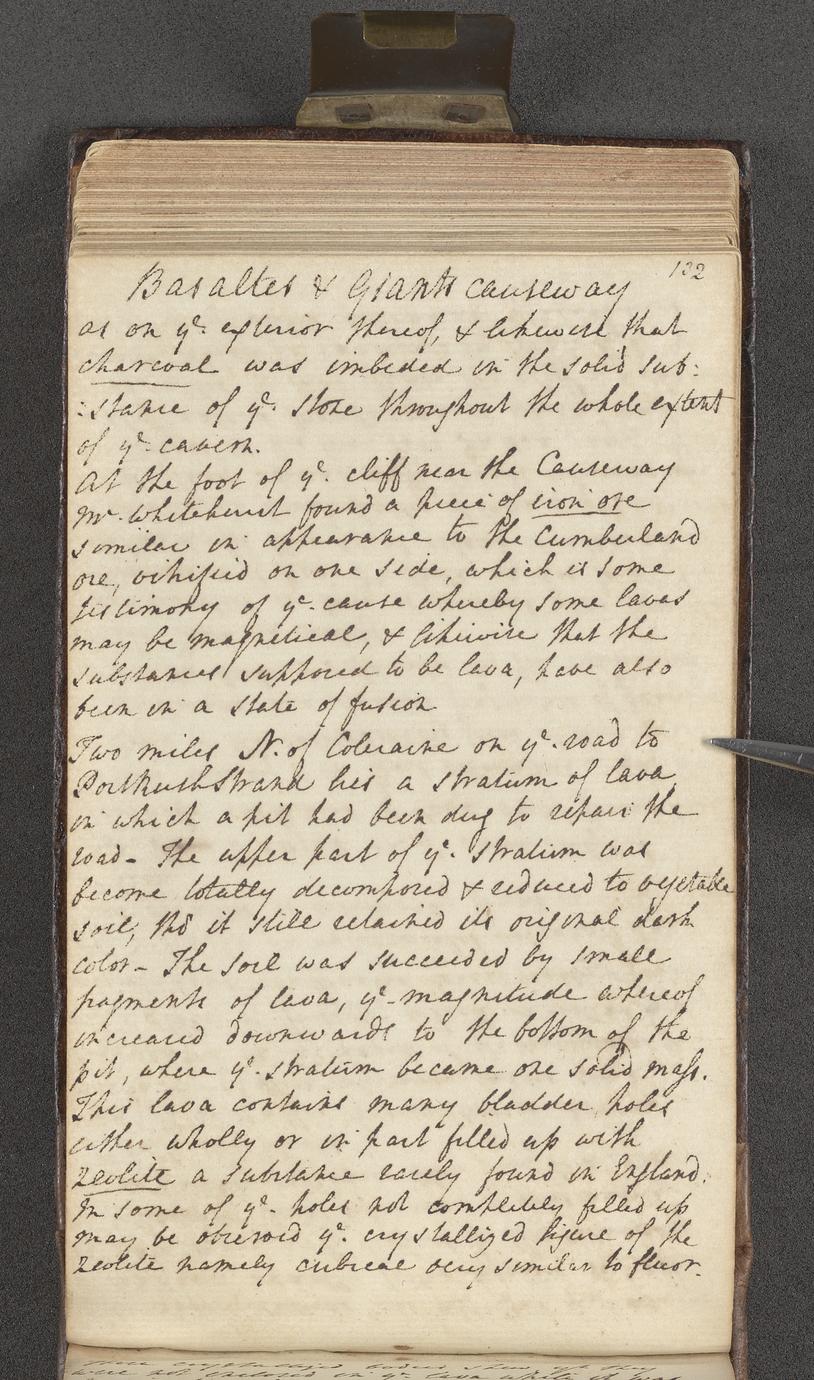 132
Basaltes & Giants causeway
as on ye. exterior thereof, & likewise that
charcoal was imbeded in the solid sub:
:stance of ye. stone throughout the whole extent
of ye. cavern.
At the foot of ye. cliff near the Causeway
Mr. Whitehurst found a piece of iron ore
similar in appearance to the Cumberland
ore, vitrified on one side, which is some
testimony of ye. cause whereby some lavas
may be magnetical, & likewise that the
substances supposed to be lava, have also
been in a state of fusion
Two miles N. of Coleraine on ye. road to
PortRush Strand lies a stratum of lava,
in which a pit had been dug to repair the
road - The upper part of ye. stratum was
become totally decomposed & reduced to vegetable
soil, tho it still retained its original dark
color - The soil was succeeded by small
fragments of lava, ye. magnitude whereof
increased downwards to the bottom of the
pit, where ye. stratum became one solid mass.
This lava contains many bladder holes
either wholly or in part filled up with
Zeolite a substance rarely found in England.
In some of ye. holes not completely filled up
may be observed ye. crystallized figure of the
Zeolite namely cubical very similar to fluor.
were not in ye. lava while it was